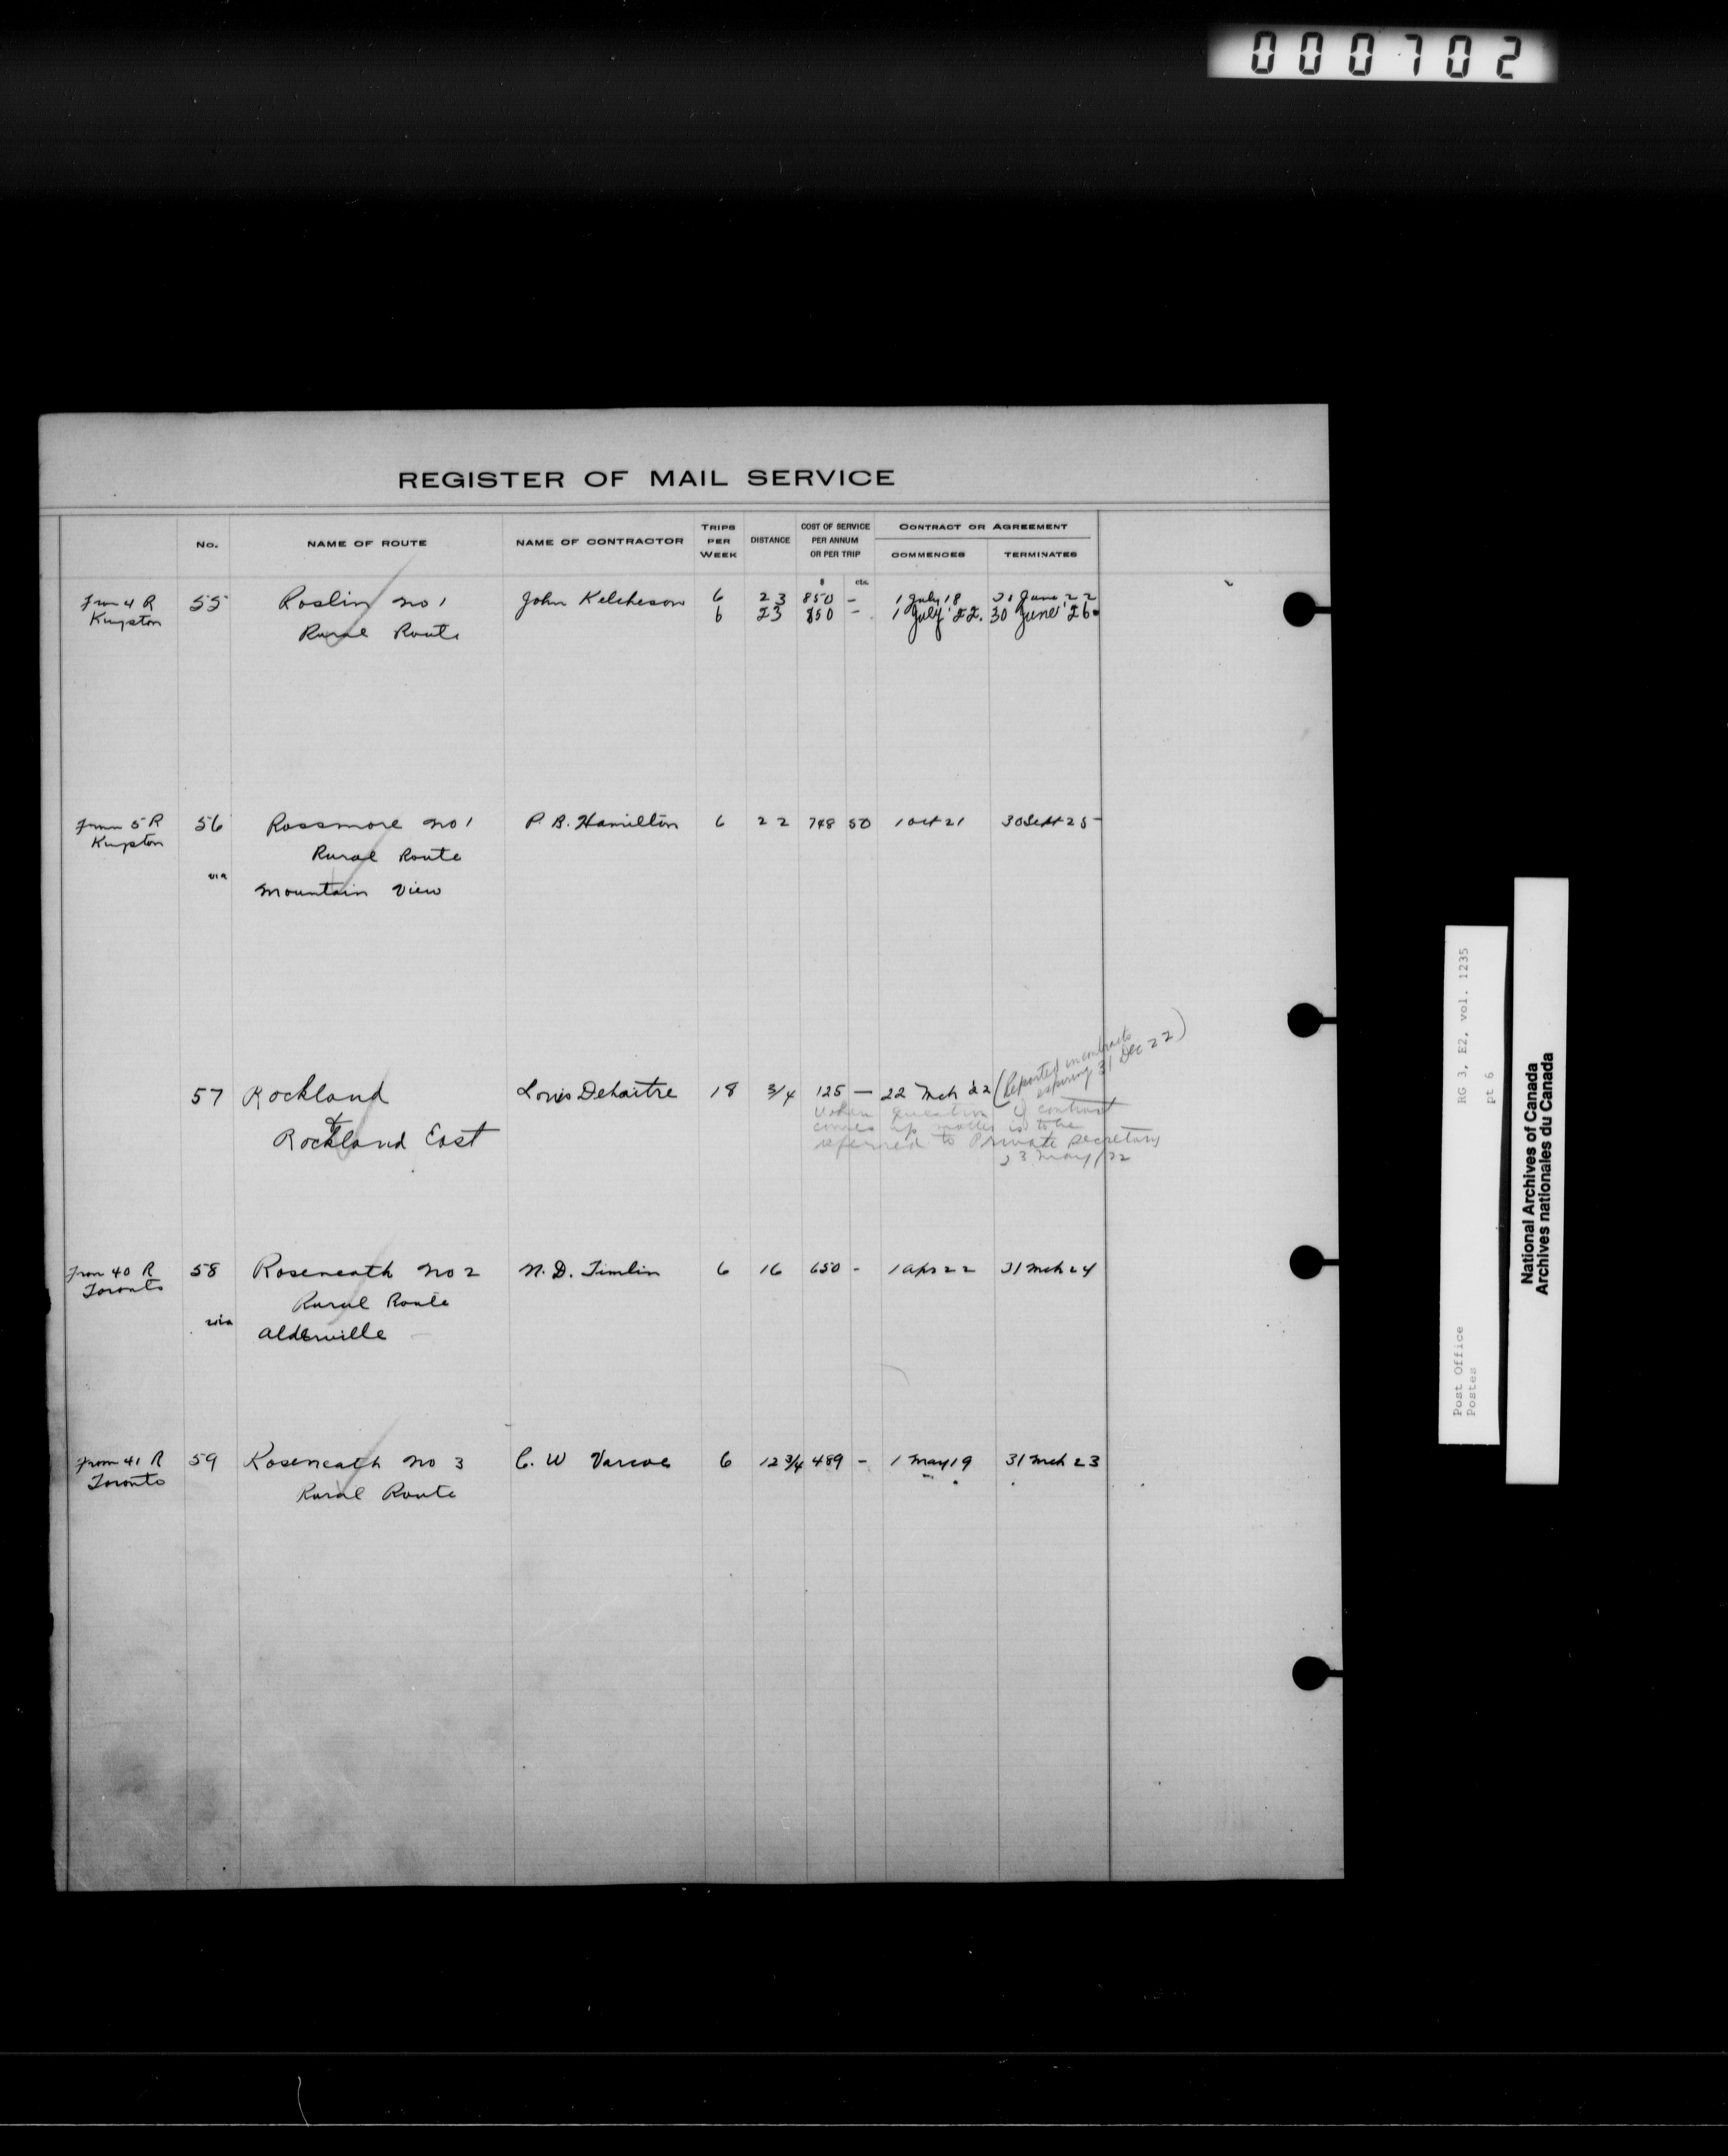 000702
REGISTER OF MAIL SERVICE
No.
NAME OF ROUTE
NAME OF CONTRACTOR
TRIPS PER WEEK
DISTANCE
COST OF SERVICE PER ANNUM OR PER TRIP
CONTRACT OR AGREEMENT
COMMENCES
TERMINATES
$ cts.
From 4 R 55 Roslin No 1 John Ketcheson 6 23 850 - 1 July 18 30 June 22
Kingston 6 23 850 - 1 July '22. 30 June '26
Rural Route
From 5 R 56 Rossmore No 1 P. B. Hamilton 6 22 748 50 1 Oct 21 30 Sept 25
Kingston Rural Route
via Mountain View
(Reported in contracts
expiring 31 Dec 22)
57 Rockland Louis Dehaitre 18 3/4 125 — 22 Mch '22
&
Rockland East
when question of contract
comes up matter is to be
referred to Private Secretary
23 May/22
From 40 R 58 Roseneath No 2 N. D. Timlin 6 16 650 - 1 Apr 22 31 Mch 24
Toronto Rural Route
via Alderville
From 41 R 59 Roseneath No 3 C. W Varcoe 6 12 3/4 489 - 1 May 19 31 Mch 23
Toronto Rural Route
RG 3, E2, vol. 1235
pt 6
Post Office
Postes
National Archives of Canada
Archives nationales du Canada